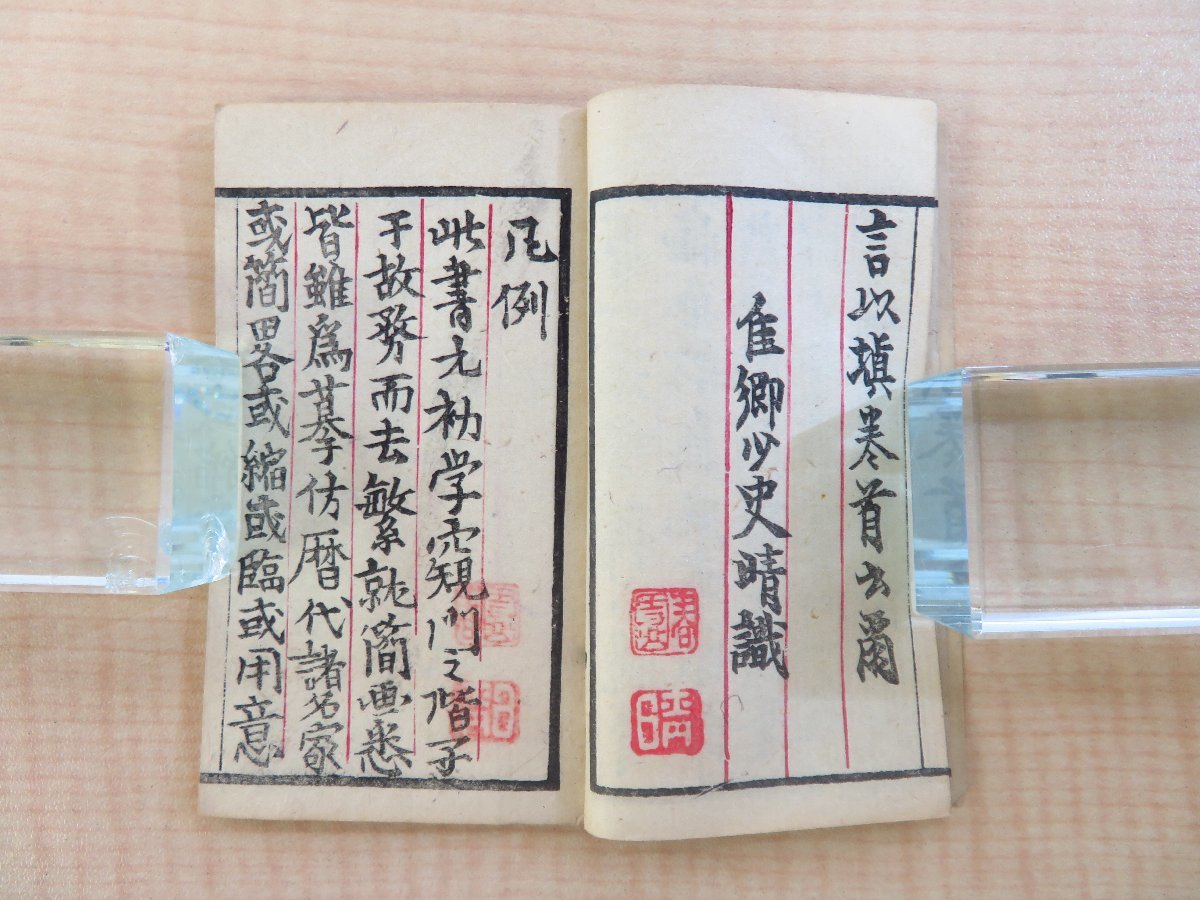 言以塡巻首云爾
隹鄉少史晴識
春囍
晴
凡例
此書元初学窺門之階子
于故務而去繁就簡画悉
皆雖爲摹仿暦代諸名家
或簡畧或縮或臨或用意